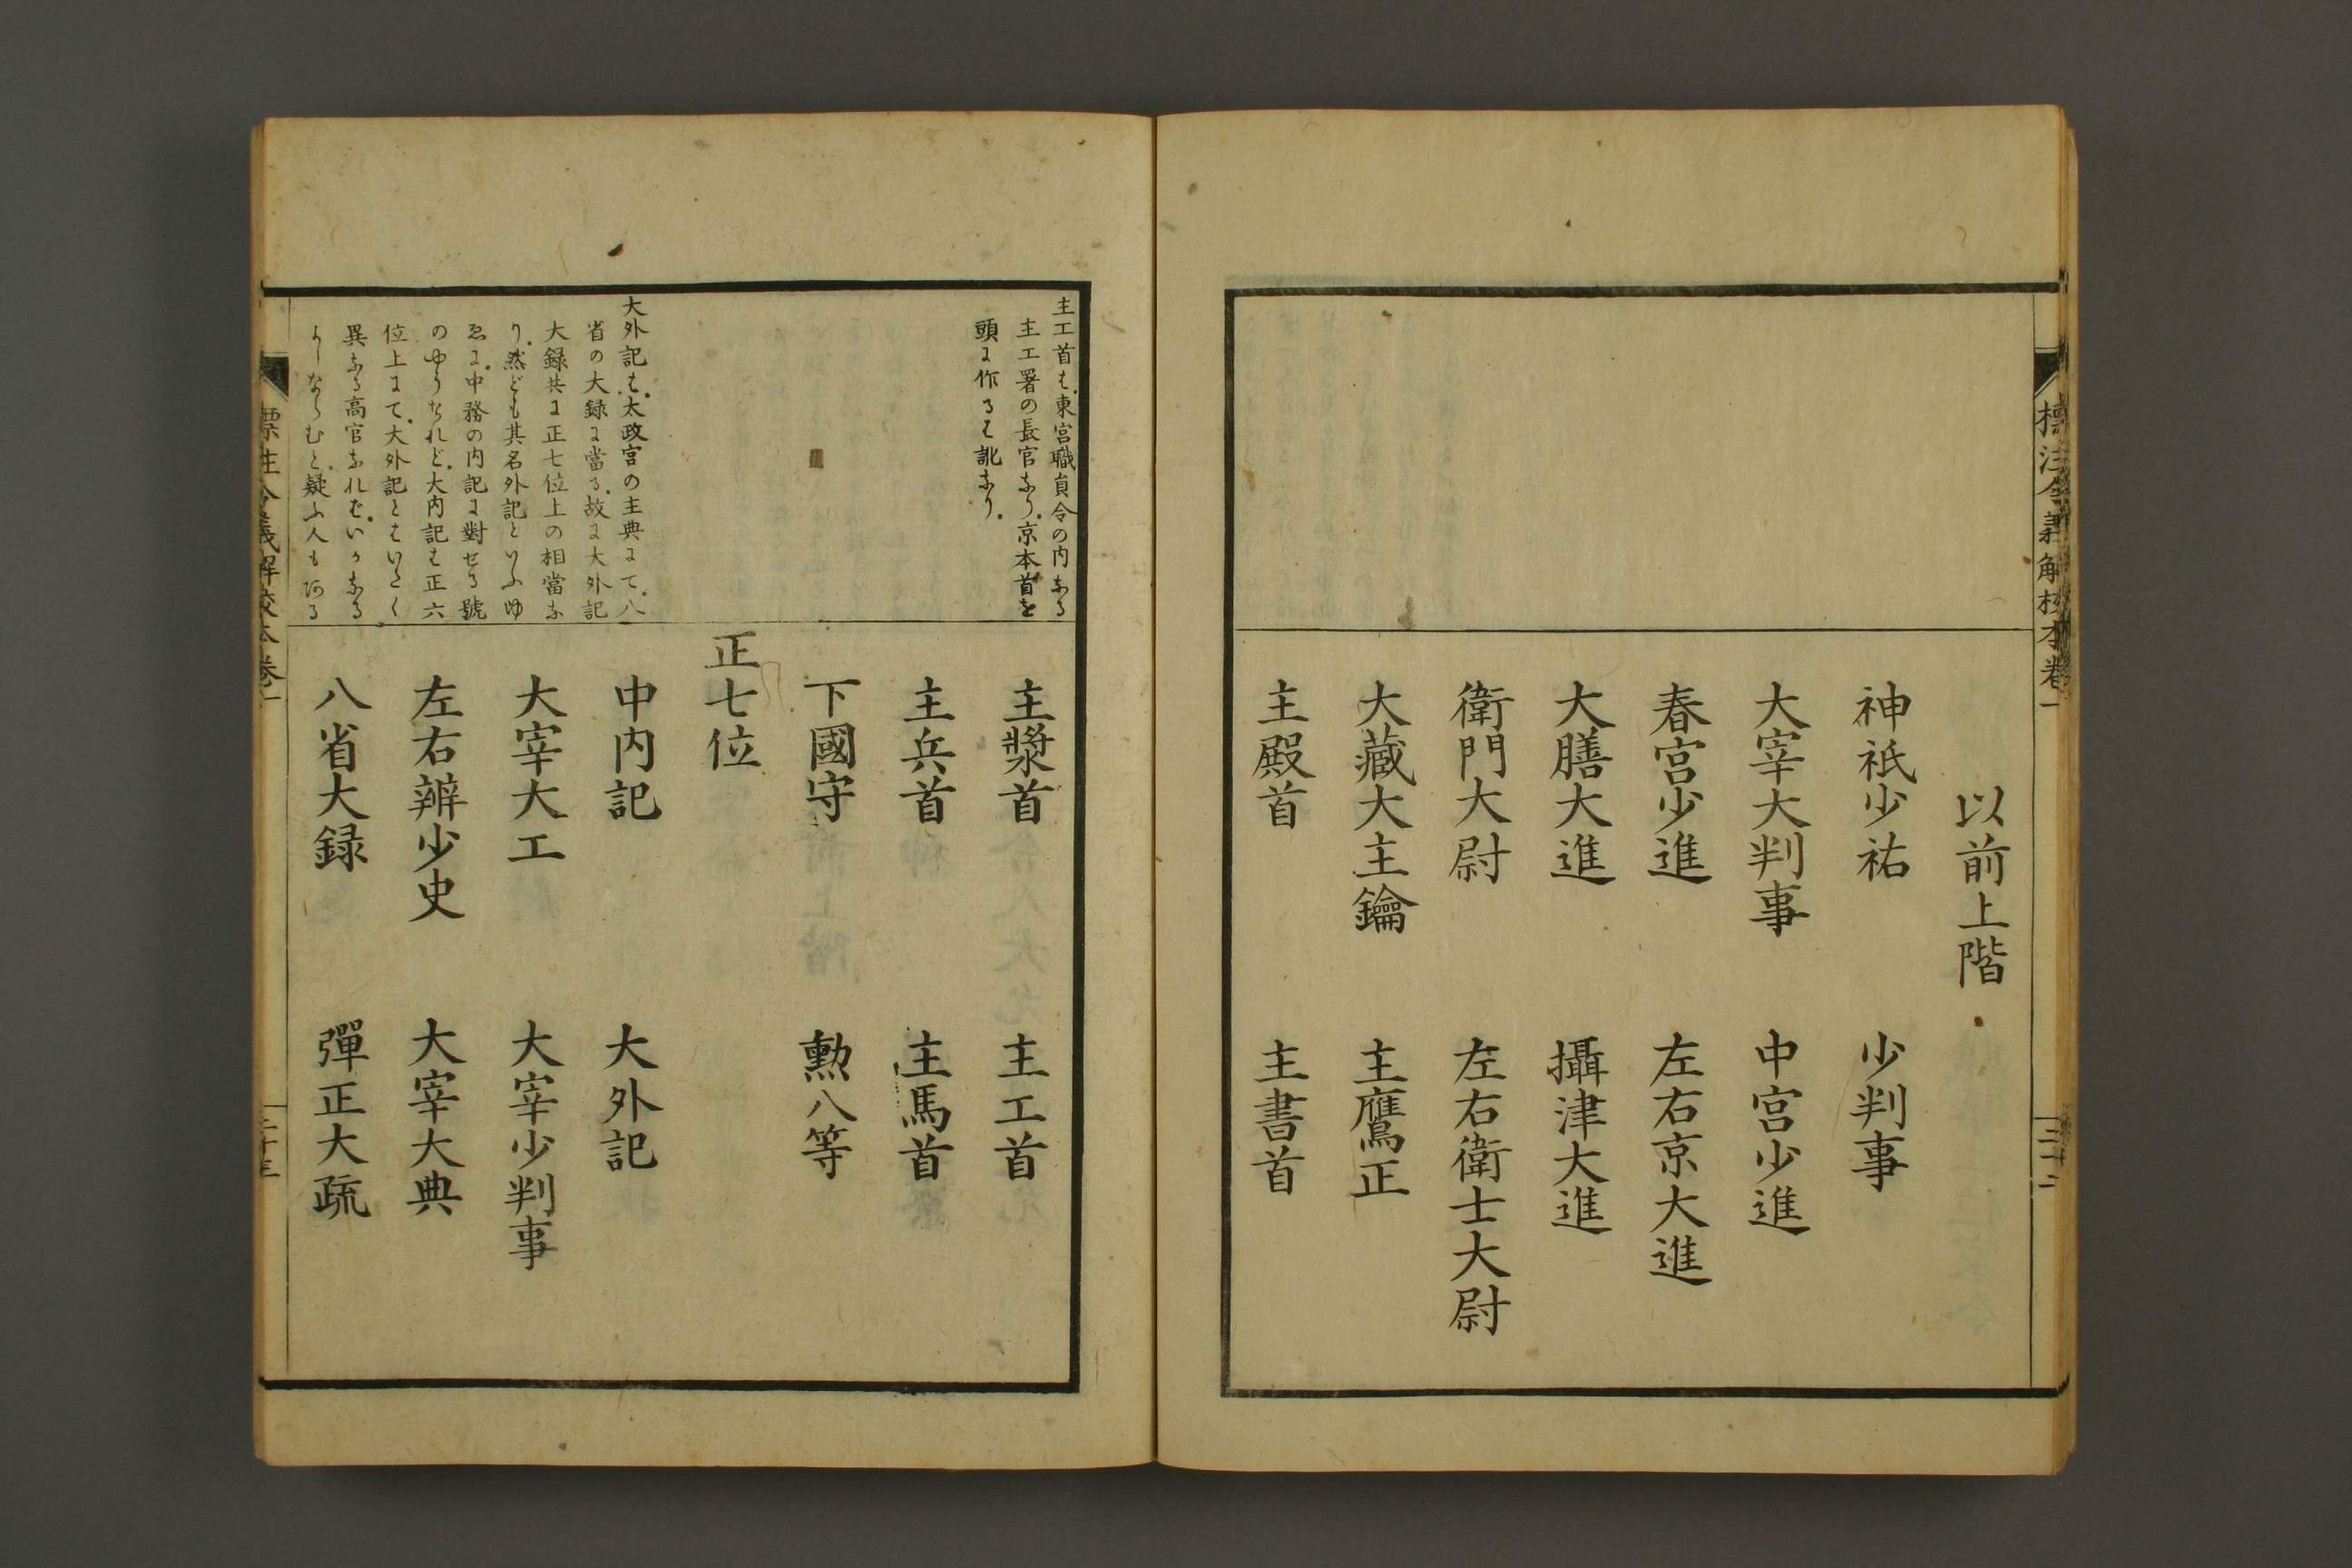 標注令義解校本卷一
以前上階
神祇少祐　少判事
大宰大判事　中宮少進
春宮少進　左右京大進
大膳大進　攝津大進
衛門大尉　左右衛士大尉
大藏大主鑰　主鷹正
主殿首　主書首
三十二
主工首は、東宮職員令の内なる
主工署の長官なり、京本首を
頭に作るは訛なり、
大外記は、太政官の主典にて、八
省の大録に當る、故に大外記
大録共に正七位上の相當な
り、然ども其名外記といふゆ
ゑに、中務の内記に對せる號
のやうなれど、大内記は正六
位上にて、大外記とはいたく
異なる高官なれば、いかなる
よしならむと、疑ふ人もある
主漿首　主工首
主兵首　主馬首
下國守　勲八等
正七位
中内記　大外記
大宰大工　大宰少判事
左右辨少史　大宰大典
八省大録　彈正大疏
標注令義解校本卷一
三十三